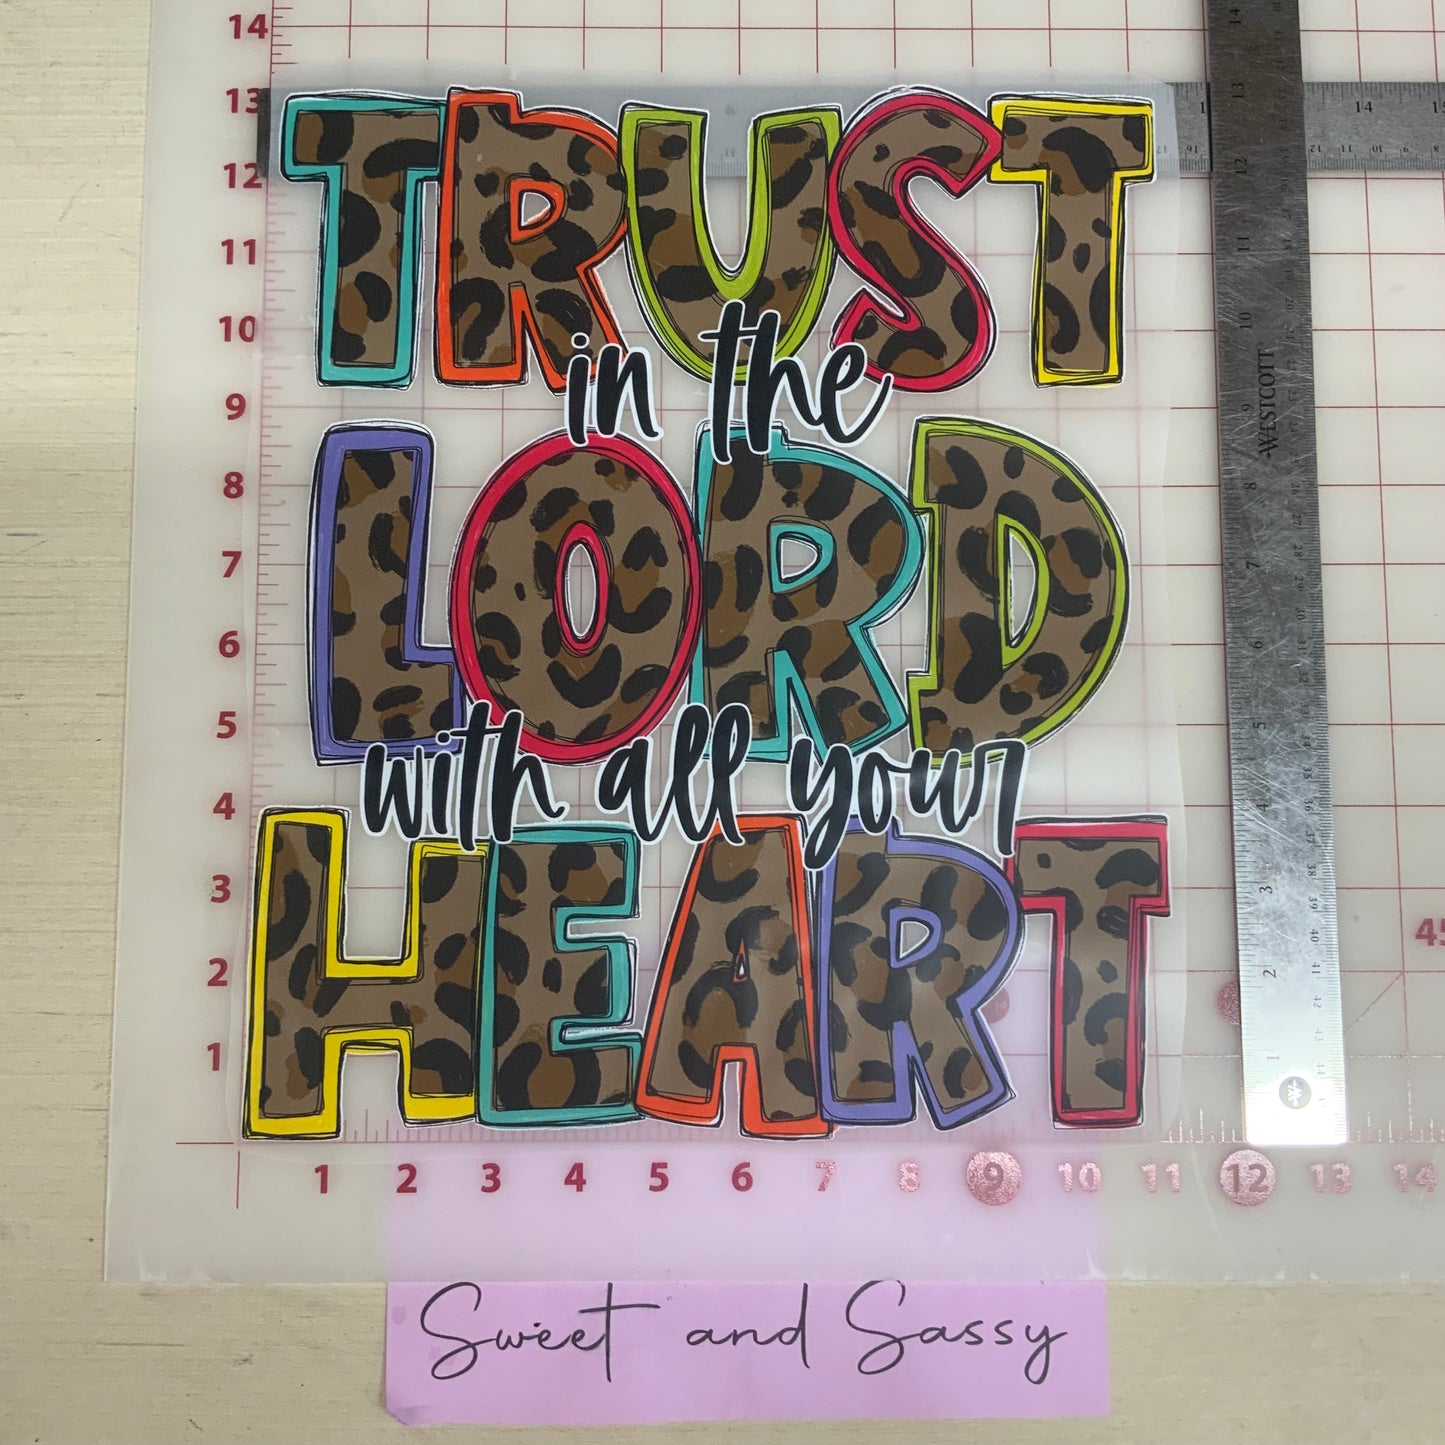 TRUST
in the
LORD
with all your
HEART
14
13
12
11
10
9
8
7
6
5
4
3
2
1
1 2 3 4 5 6 7 8 9 10 11 12 13 14
WESTCOTT
45
Sweet and Sassy